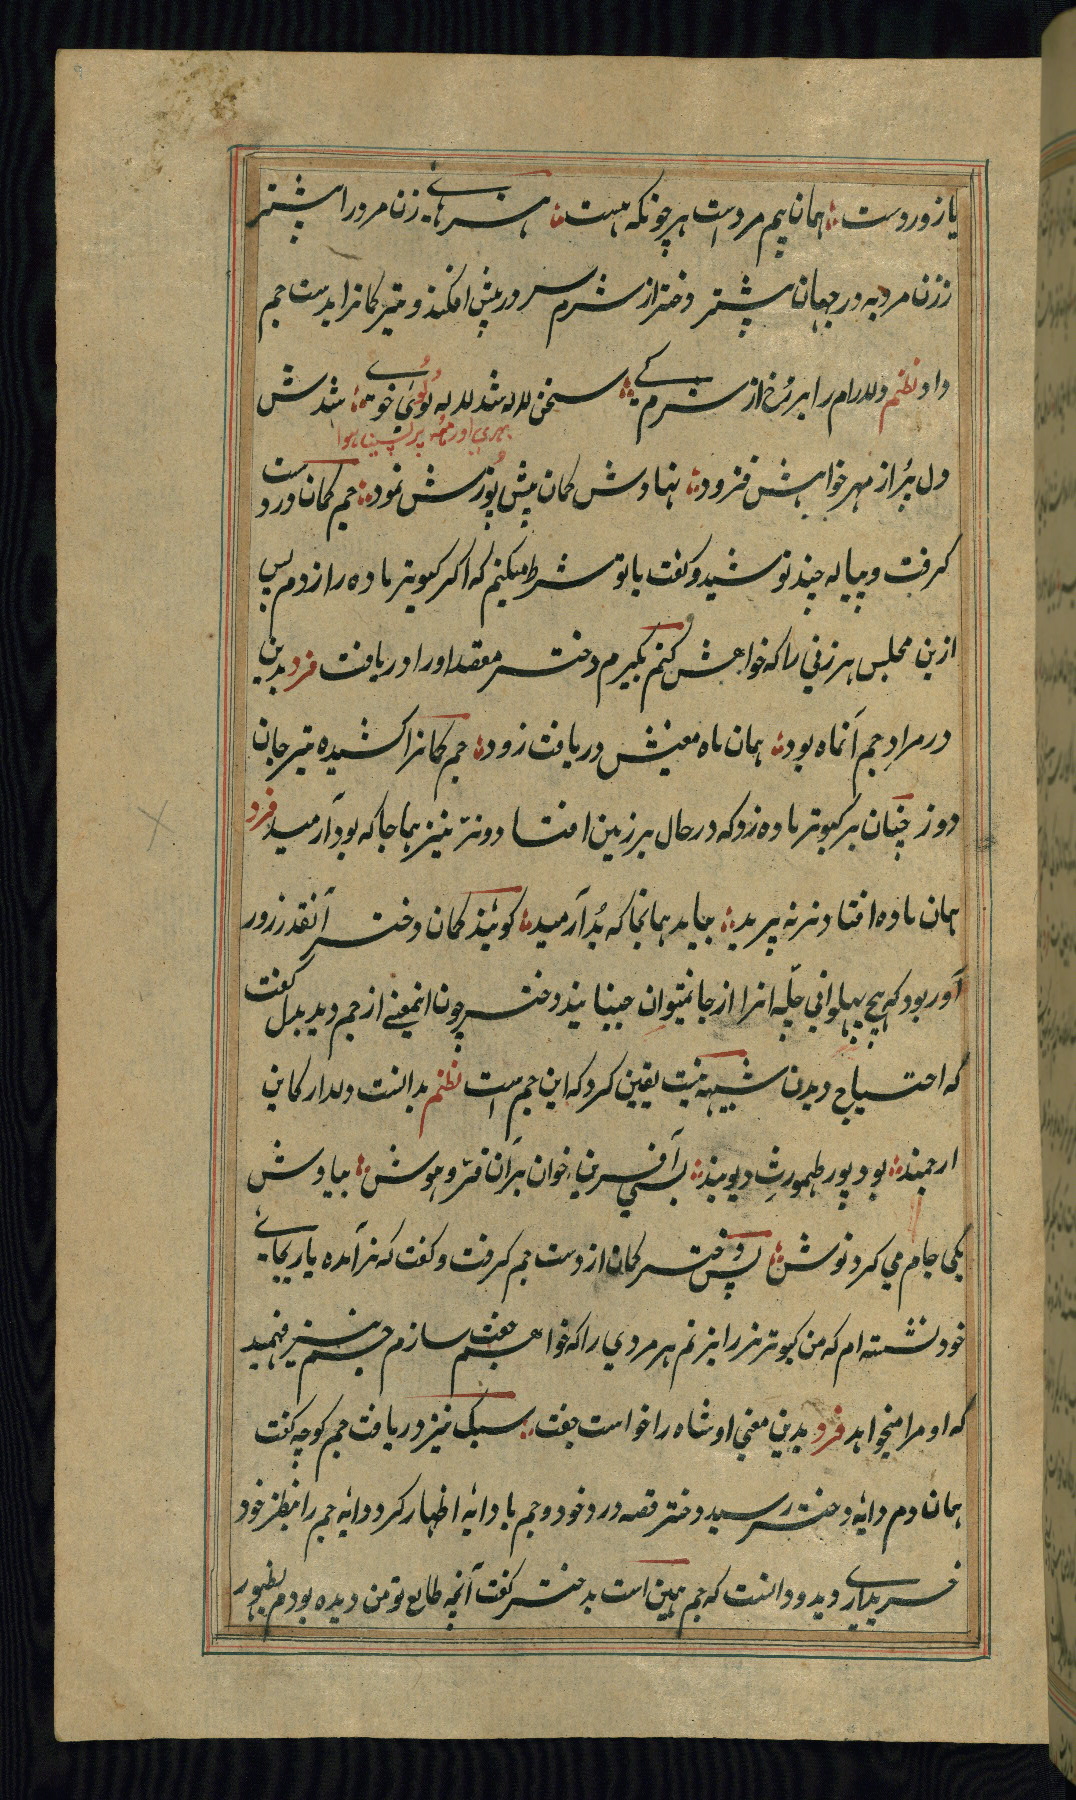 یا زوردست ؞ همان نیم مردست هرچونکه هست ؞ هنرهای زن مرد را بیشتر
ززن مرد به در جهان بیشتر دختر از شرم سر در پیش افکند و تیر کمانرا بدست جم
داد نظم دلارام را بر رخ از شرم کے ؞ سخن لاله شد لاله لولوی خوے ؞ شدش
بهری اور منھ پر پسینا ہوا
دل پر از مهر خواهش فزود ؞ نهادش کمان پیش پوزش نمود ؞ جم کمان در دست
کرفت و پیاله چند نوشید و کفت با تو شرط میکنم که اکر کبوتر ماده را زدم پس
ازین مجلس هر زنی را که خواهش کنم بکیرم دختر مقصد او را دریافت فرد بدین
در مراد جم آنماه بود ؞ همان ماه معنیش دریافت زود ؞ جم کمانرا کشیده تیر جان
دوز چنان بر کبوتر ماده زد که در حال بر زمین افتاد و نر نیز همانجا که بود آرمید فرد
همان ماده افتاد و نر نه پرید ؞ بیامد همانجا که بُد آرمید ؞ کویند کمان دختر آنقدر زور
آور بود که هیچ پهلوانی چلّه انرا از جا نمیتوان جنبانید دختر چون اینمعنے از جم دید بدل کفت
که احتیاج دیدن شبیه نیست یقین کرد که این جم است نظم بدانست دلدار کاین
ارجمند ؞ بود پور طهمورث دیوبند ؞ بسی آفرین خوان بران فرّ و هوش ؞ بیادش
یکی جام می کرد نوش ؞ پس دختر کمان از دست جم کرفت و کفت که نر آمده یار بجاے
خود نشسته ام که من کبوتر نر را بزنم هر مردی را که خواهم جفت سازم جم نیز فهمید
که او مرا میخواهد فرد بدین معنی او شاه را خواست جفت ؞ سبک نیز دریافت جم کو چه کفت
همان دم دایهٔ دختر رسید دختر قصه درد خود و جم با دایه اظهار کرد دایه جم را بنظر خود
خریداری دید و دانست که جم همین است بدختر کفت آنچه طالع تو من دیده بودم بظهور